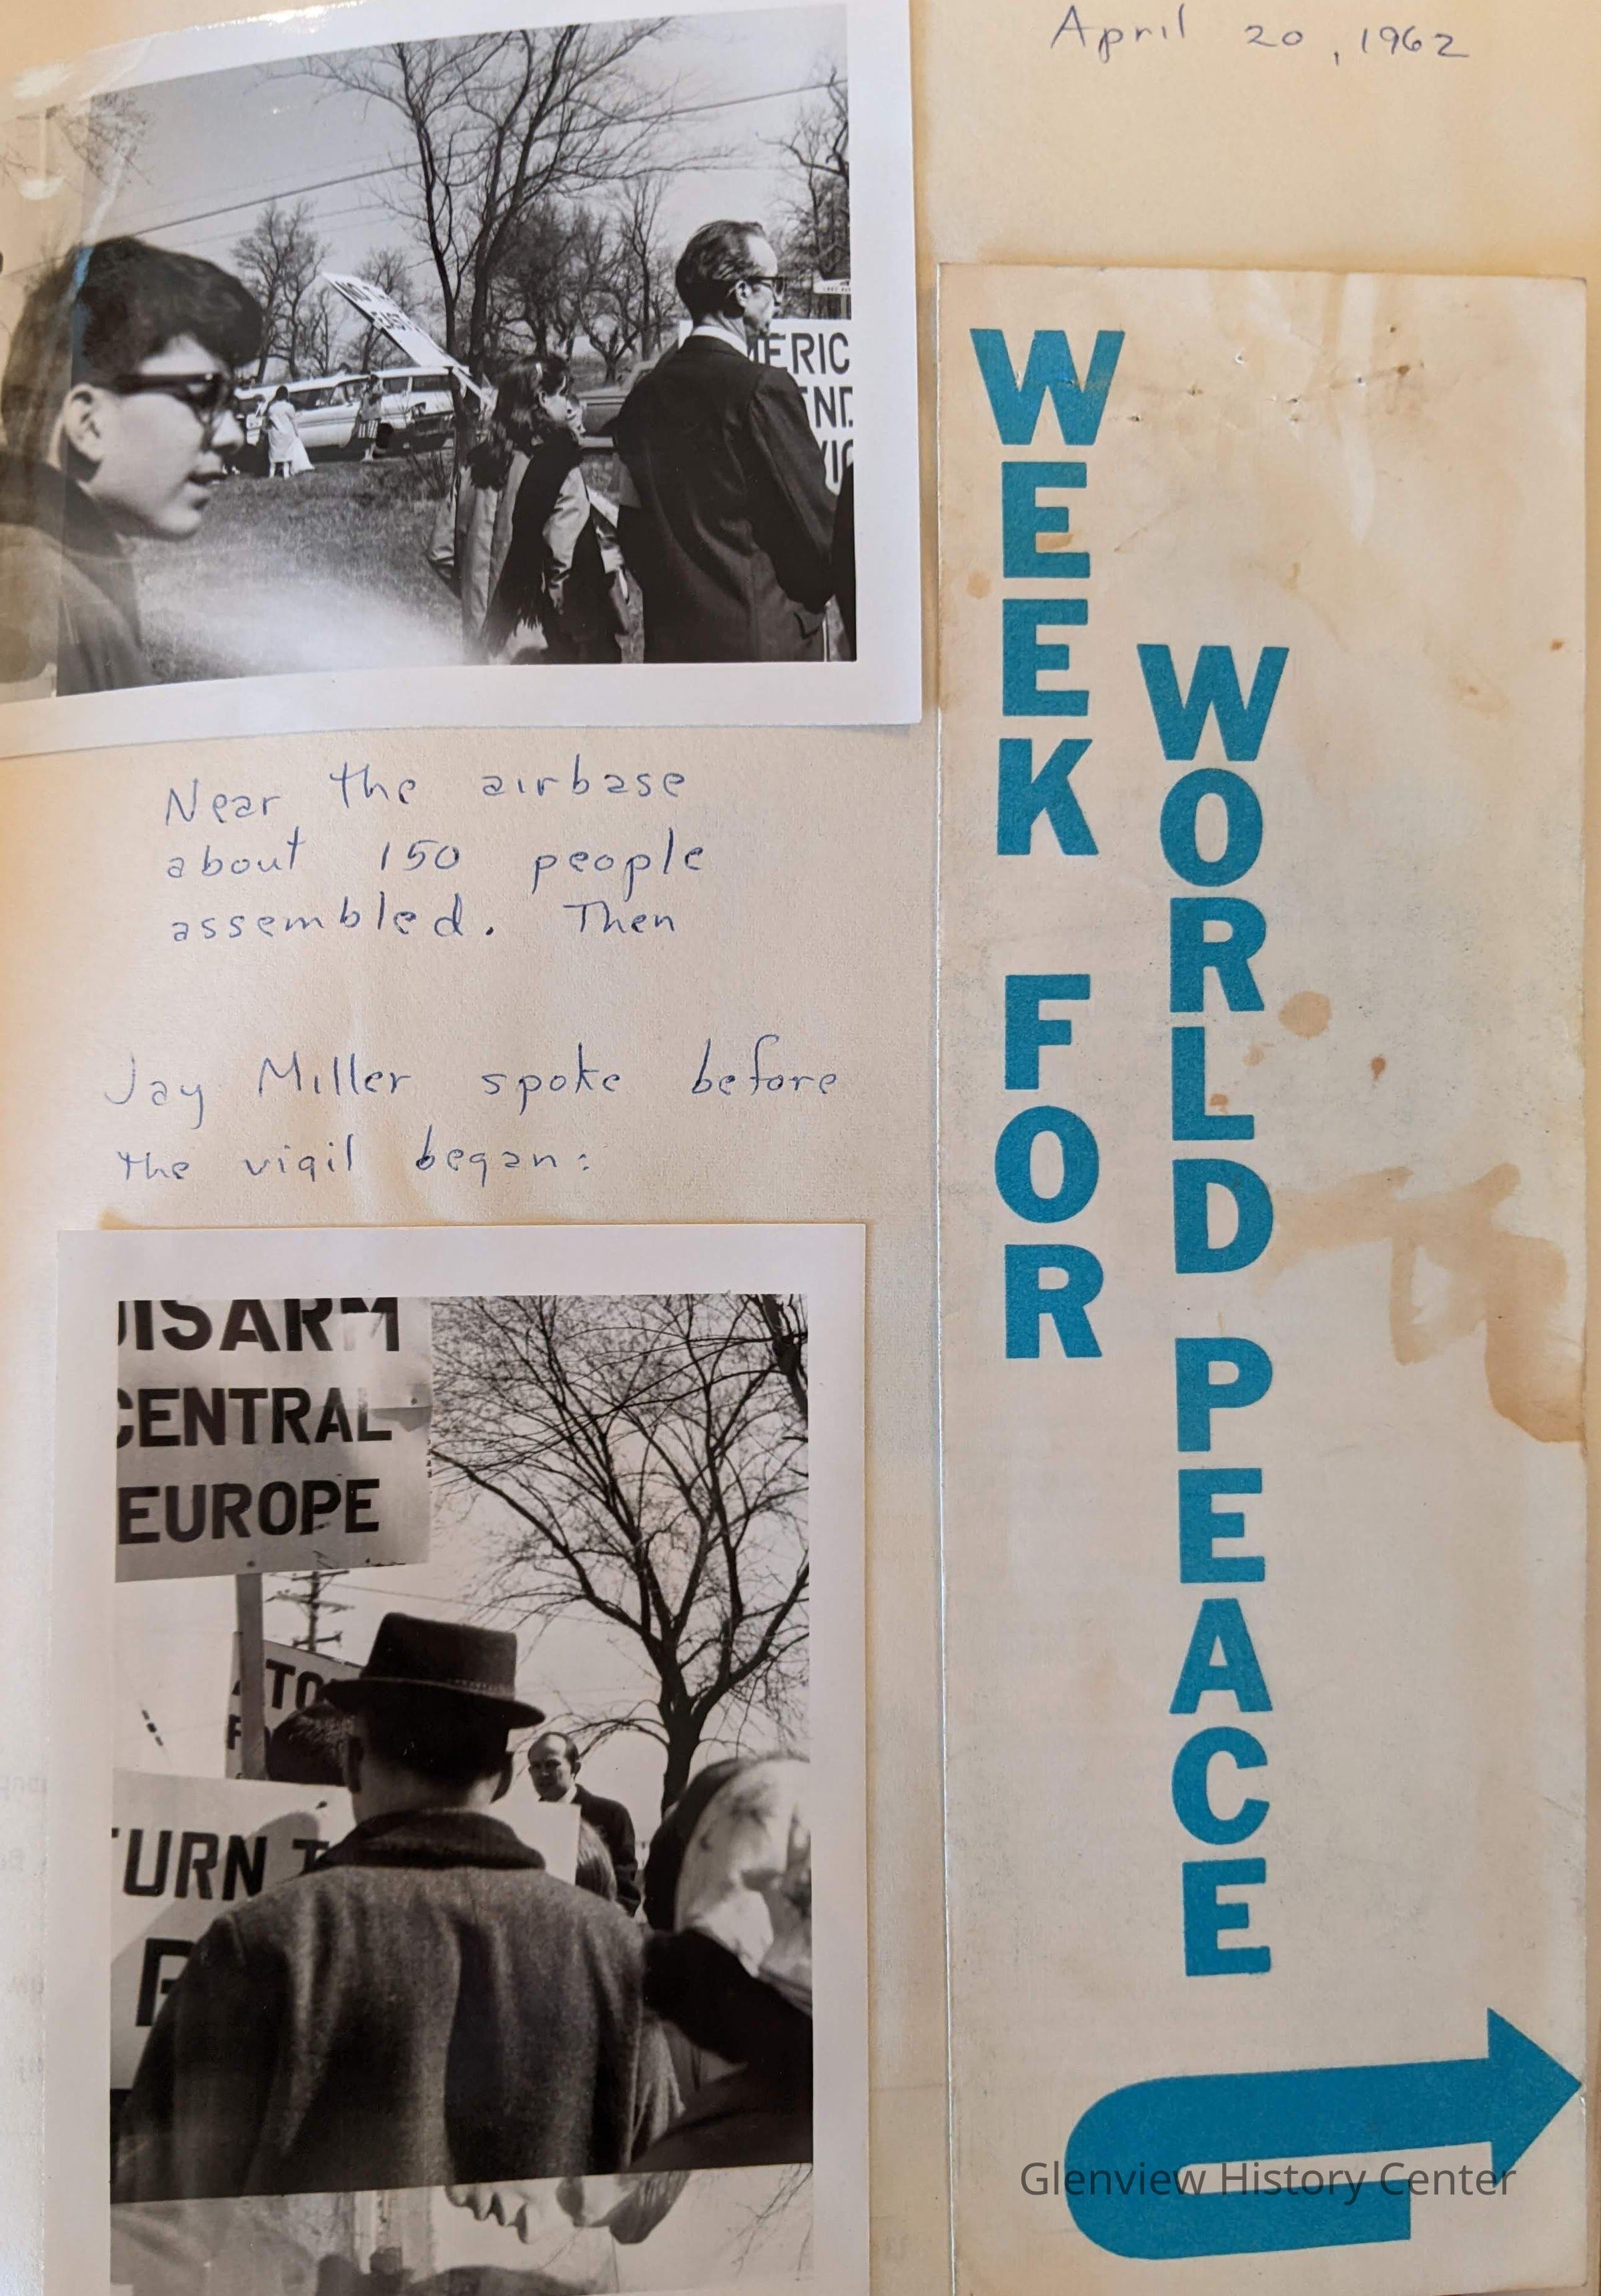 April 20, 1962
ERIC
END
Near the airbase
about 150 people
assembled. Then
Jay Miller spoke before
the vigil began:
DISARM
CENTRAL
EUROPE
ATO
URN T
WEEK FOR
WORLD PEACE
Glenview History Center